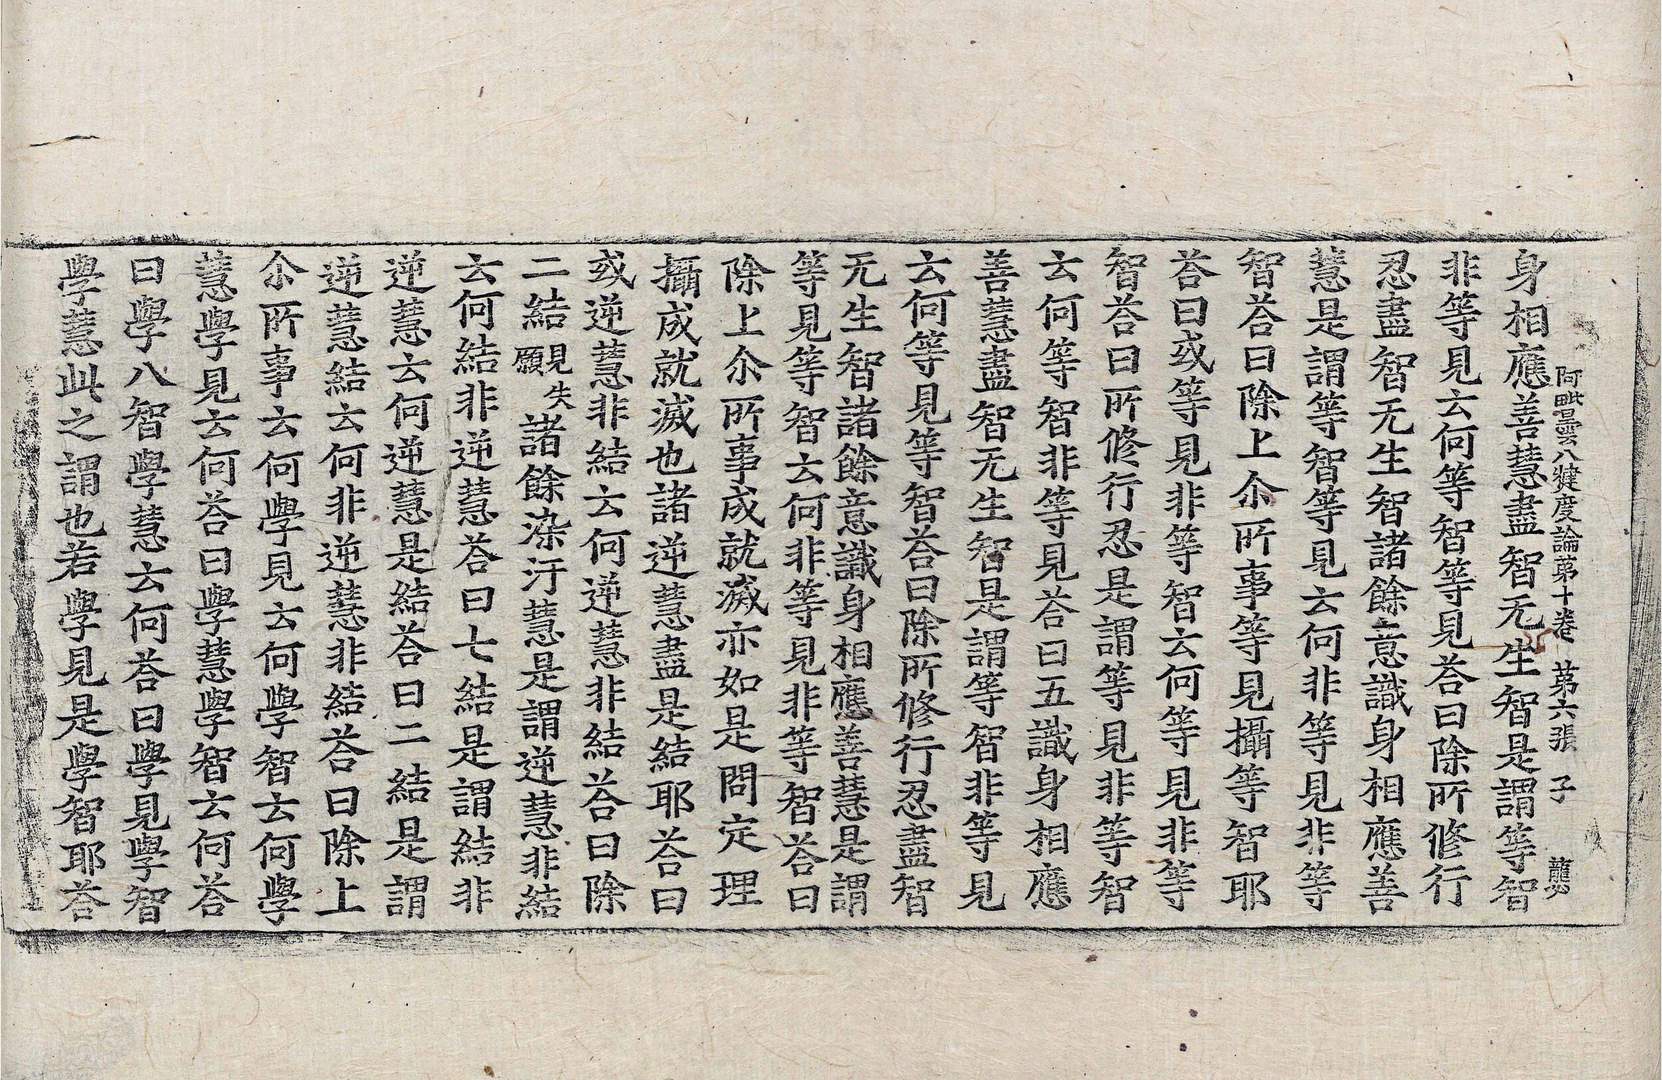 阿毗曇八犍度論第十卷 第六張 子
身相應善慧盡智无生智是謂等智
非等見云何等智等見荅曰除所修行
忍盡智无生智諸餘意識身相應善
慧是謂等智等見云何非等見非等
智荅曰除上尒所事等見攝等智耶
荅曰或等見非等智云何等見非等
智荅曰所修行忍是謂等見非等智
云何等智非等見荅曰五識身相應
善慧盡智无生智是謂等智非等見
云何等見等智荅曰除所修行忍盡智
无生智諸餘意識身相應善慧是謂
等見等智云何非等見非等智荅曰
除上尒所事成就滅亦如是問定理
攝成就滅也諸逆慧盡是結耶荅曰
或逆慧非結云何逆慧非結荅曰除
二結見失願諸餘染汙慧是謂逆慧非結
云何結非逆慧荅曰七結是謂結非
逆慧云何逆慧是結荅曰二結是謂
逆慧結云何非逆慧非結荅曰除上
尒所事云何學見云何學智云何學
慧學見云何荅曰學慧學智云何荅
曰學八智學慧云何荅曰學見學智
學慧此之謂也若學見是學智耶荅